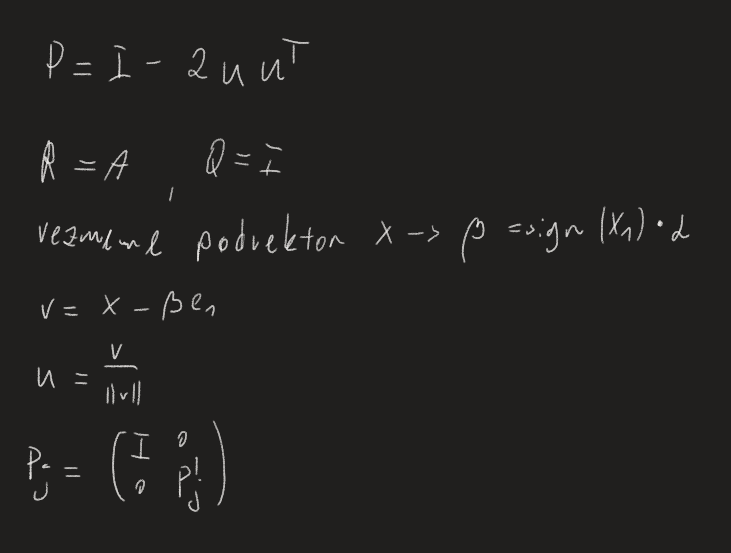 P = I - 2 u uᵀ
R = A , Q = I
vezmeme podvektor x -> β = sign (x₁) · α
v = x - β e₁
u = v / ||v||
Pⱼ = ( I 0
0 Pⱼ' )